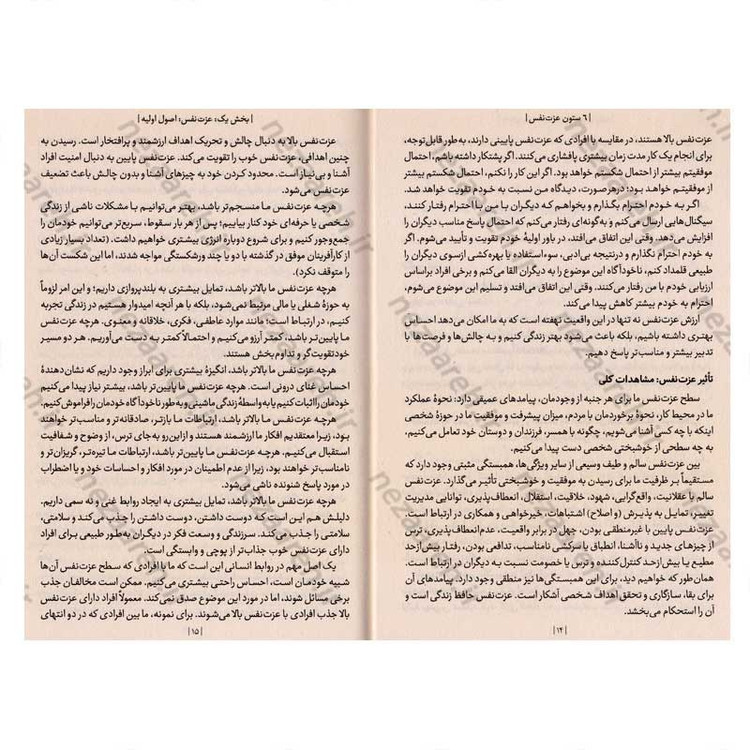 | ۶ ستون عزت‌نفس |
عزت‌نفس بالا هستند، در مقایسه با افرادی که عزت‌نفس پایینی دارند، به‌طور قابل‌توجه،
برای انجام یک کار مدت زمان بیشتری پافشاری می‌کنند. اگر پشتکار داشته باشم، احتمال
موفقیتم بیشتر از احتمال شکستم خواهد بود. اگر این کار را نکنم، احتمال شکستم بیشتر
از موفقیتم خواهد بود؛ درهرصورت، دیدگاه من نسبت به خودم تقویت خواهد شد.
اگر به خودم احترام بگذارم و بخواهم که دیگران با من با احترام رفتار کنند،
سیگنال‌هایی ارسال می‌کنم و به‌گونه‌ای رفتار می‌کنم که احتمال پاسخ مناسب دیگران را
افزایش می‌دهد. وقتی این اتفاق می‌افتد، در باور اولیهٔ خودم تقویت و تأیید می‌شوم. اگر
به خودم احترام نگذارم و درنتیجه بی‌ادبی، سوءاستفاده یا بهره‌کشی ازسوی دیگران را
طبیعی قلمداد کنم، ناخودآگاه این موضوع را به دیگران القا می‌کنم و برخی افراد براساس
ارزیابی خودم با من رفتار می‌کنند. وقتی این اتفاق می‌افتد و تسلیم این موضوع می‌شوم،
احترام به خودم بیشتر کاهش پیدا می‌کند.
ارزش عزت‌نفس نه تنها در این واقعیت نهفته است که به ما امکان می‌دهد احساس
بهتری داشته باشیم، بلکه باعث می‌شود بهتر زندگی کنیم و به چالش‌ها و فرصت‌ها با
تدبیر بیشتر و مناسب‌تر پاسخ دهیم.
تأثیر عزت‌نفس: مشاهدات کلی
سطح عزت‌نفس ما برای هر جنبه از وجودمان، پیامدهای عمیقی دارد: نحوهٔ عملکرد
ما در محیط کار، نحوهٔ برخوردمان با مردم، میزان پیشرفت و موفقیت ما در حوزهٔ شخصی
اینکه با چه کسی آشنا می‌شویم، چگونه با همسر، فرزندان و دوستان خود تعامل می‌کنیم،
به چه سطحی از خوشبختی شخصی دست پیدا می‌کنیم.
بین عزت‌نفس سالم و طیف وسیعی از سایر ویژگی‌ها، همبستگی مثبتی وجود دارد که
مستقیماً بر ظرفیت ما برای رسیدن به موفقیت و خوشبختی تأثیر می‌گذارد. عزت‌نفس
سالم با عقلانیت، واقع‌گرایی، شهود، خلاقیت، استقلال، انعطاف‌پذیری، توانایی مدیریت
تغییر، تمایل به پذیرش (و اصلاح) اشتباهات، خیرخواهی و همکاری در ارتباط است.
عزت‌نفس پایین با غیرمنطقی بودن، جهل در برابر واقعیت، عدم‌انعطاف‌پذیری، ترس
از چیزهای جدید و ناآشنا، انطباق یا سرکشی نامناسب، تدافعی بودن، رفتار بیش‌ازحد
مطیع یا بیش‌ازحد کنترل‌کننده و ترس یا خصومت نسبت به دیگران در ارتباط است.
همان‌طور که خواهیم دید، برای این همبستگی‌ها نیز منطقی وجود دارد. پیامدهای آن
برای بقا، سازگاری و تحقق اهداف شخصی آشکار است. عزت‌نفس حافظ زندگی است و
آن را استحکام می‌بخشد.
| ۱۴ |
| بخش یک: عزت‌نفس: اصول اولیه |
عزت‌نفس بالا به دنبال چالش و تحریک اهداف ارزشمند و پرافتخار است. رسیدن به
چنین اهدافی، عزت‌نفس خوب را تقویت می‌کند. عزت‌نفس پایین به دنبال امنیت افراد
آشنا و بی‌نیاز است. محدود کردن خود به چیزهای آشنا و بدون چالش باعث تضعیف
عزت‌نفس می‌شود.
هرچه عزت‌نفس ما منسجم‌تر باشد، بهتر می‌توانیم با مشکلات ناشی از زندگی
شخصی یا حرفه‌ای خود کنار بیاییم؛ پس از هر بار سقوط، سریع‌تر می‌توانیم خودمان را
جمع‌وجور کنیم و برای شروع دوباره انرژی بیشتری خواهیم داشت. (تعداد بسیار زیادی
از کارآفرینان موفق در گذشته با دو یا چند ورشکستگی مواجه شدند، اما این شکست آن‌ها
را متوقف نکرد).
هرچه عزت‌نفس ما بالاتر باشد، تمایل بیشتری به بلندپروازی داریم؛ و این امر لزوماً
به حوزهٔ شغلی یا مالی مرتبط نمی‌شود، بلکه با هر آنچه امیدوار هستیم در زندگی تجربه
کنیم، در ارتباط است؛ مانند موارد عاطفی، فکری، خلاقانه و معنوی. هرچه عزت‌نفس
ما پایین‌تر باشد، کمتر آرزو می‌کنیم و احتمالاً کمتر به دست می‌آوریم. هر دو مسیر
خودتقویت‌گر و تداوم‌بخش هستند.
هرچه عزت‌نفس ما بالاتر باشد، انگیزهٔ بیشتری برای ابراز وجود داریم که نشان‌دهندهٔ
احساس غنای درونی است. هرچه عزت‌نفس ما پایین‌تر باشد، بیشتر نیاز پیدا می‌کنیم
خودمان را اثبات کنیم یا به‌واسطهٔ زندگی ماشینی و به‌طور ناخودآگاه خودمان را فراموش کنیم.
هرچه عزت‌نفس ما بالاتر باشد، ارتباطات ما بازتر، صادقانه‌تر و مناسب‌تر خواهند
بود، زیرا معتقدیم افکار ما ارزشمند هستند و ازاین‌رو به‌جای ترس، از وضوح و شفافیت
استقبال می‌کنیم. هرچه عزت‌نفس ما پایین‌تر باشد، ارتباطات ما تیره‌تر، گریزان‌تر و
نامناسب‌تر خواهند بود، زیرا از عدم اطمینان در مورد افکار و احساسات خود و یا اضطراب
در مورد پاسخ شنونده ناشی می‌شود.
هرچه عزت‌نفس ما بالاتر باشد، تمایل بیشتری به ایجاد روابط غنی و نه سمی داریم.
دلیلش هم این است که دوست داشتن، دوست داشتن را جذب می‌کند و سلامتی،
سلامتی را جذب می‌کند. سرزندگی و وسعت فکر در دیگران به‌طور طبیعی برای افراد
دارای عزت‌نفس خوب جذاب‌تر از پوچی و وابستگی است.
یک اصل مهم در روابط انسانی این است که ما با افرادی که سطح عزت‌نفس آن‌ها
شبیه خودمان است، احساس راحتی بیشتری می‌کنیم. ممکن است مخالفان جذب
برخی مسائل شوند، اما در مورد این موضوع صدق نمی‌کند. معمولاً افراد دارای عزت‌نفس
بالا جذب افرادی با عزت‌نفس بالا می‌شوند. برای نمونه، ما بین افرادی که در دو انتهای
| ۱۵ |
nezaareh.ir